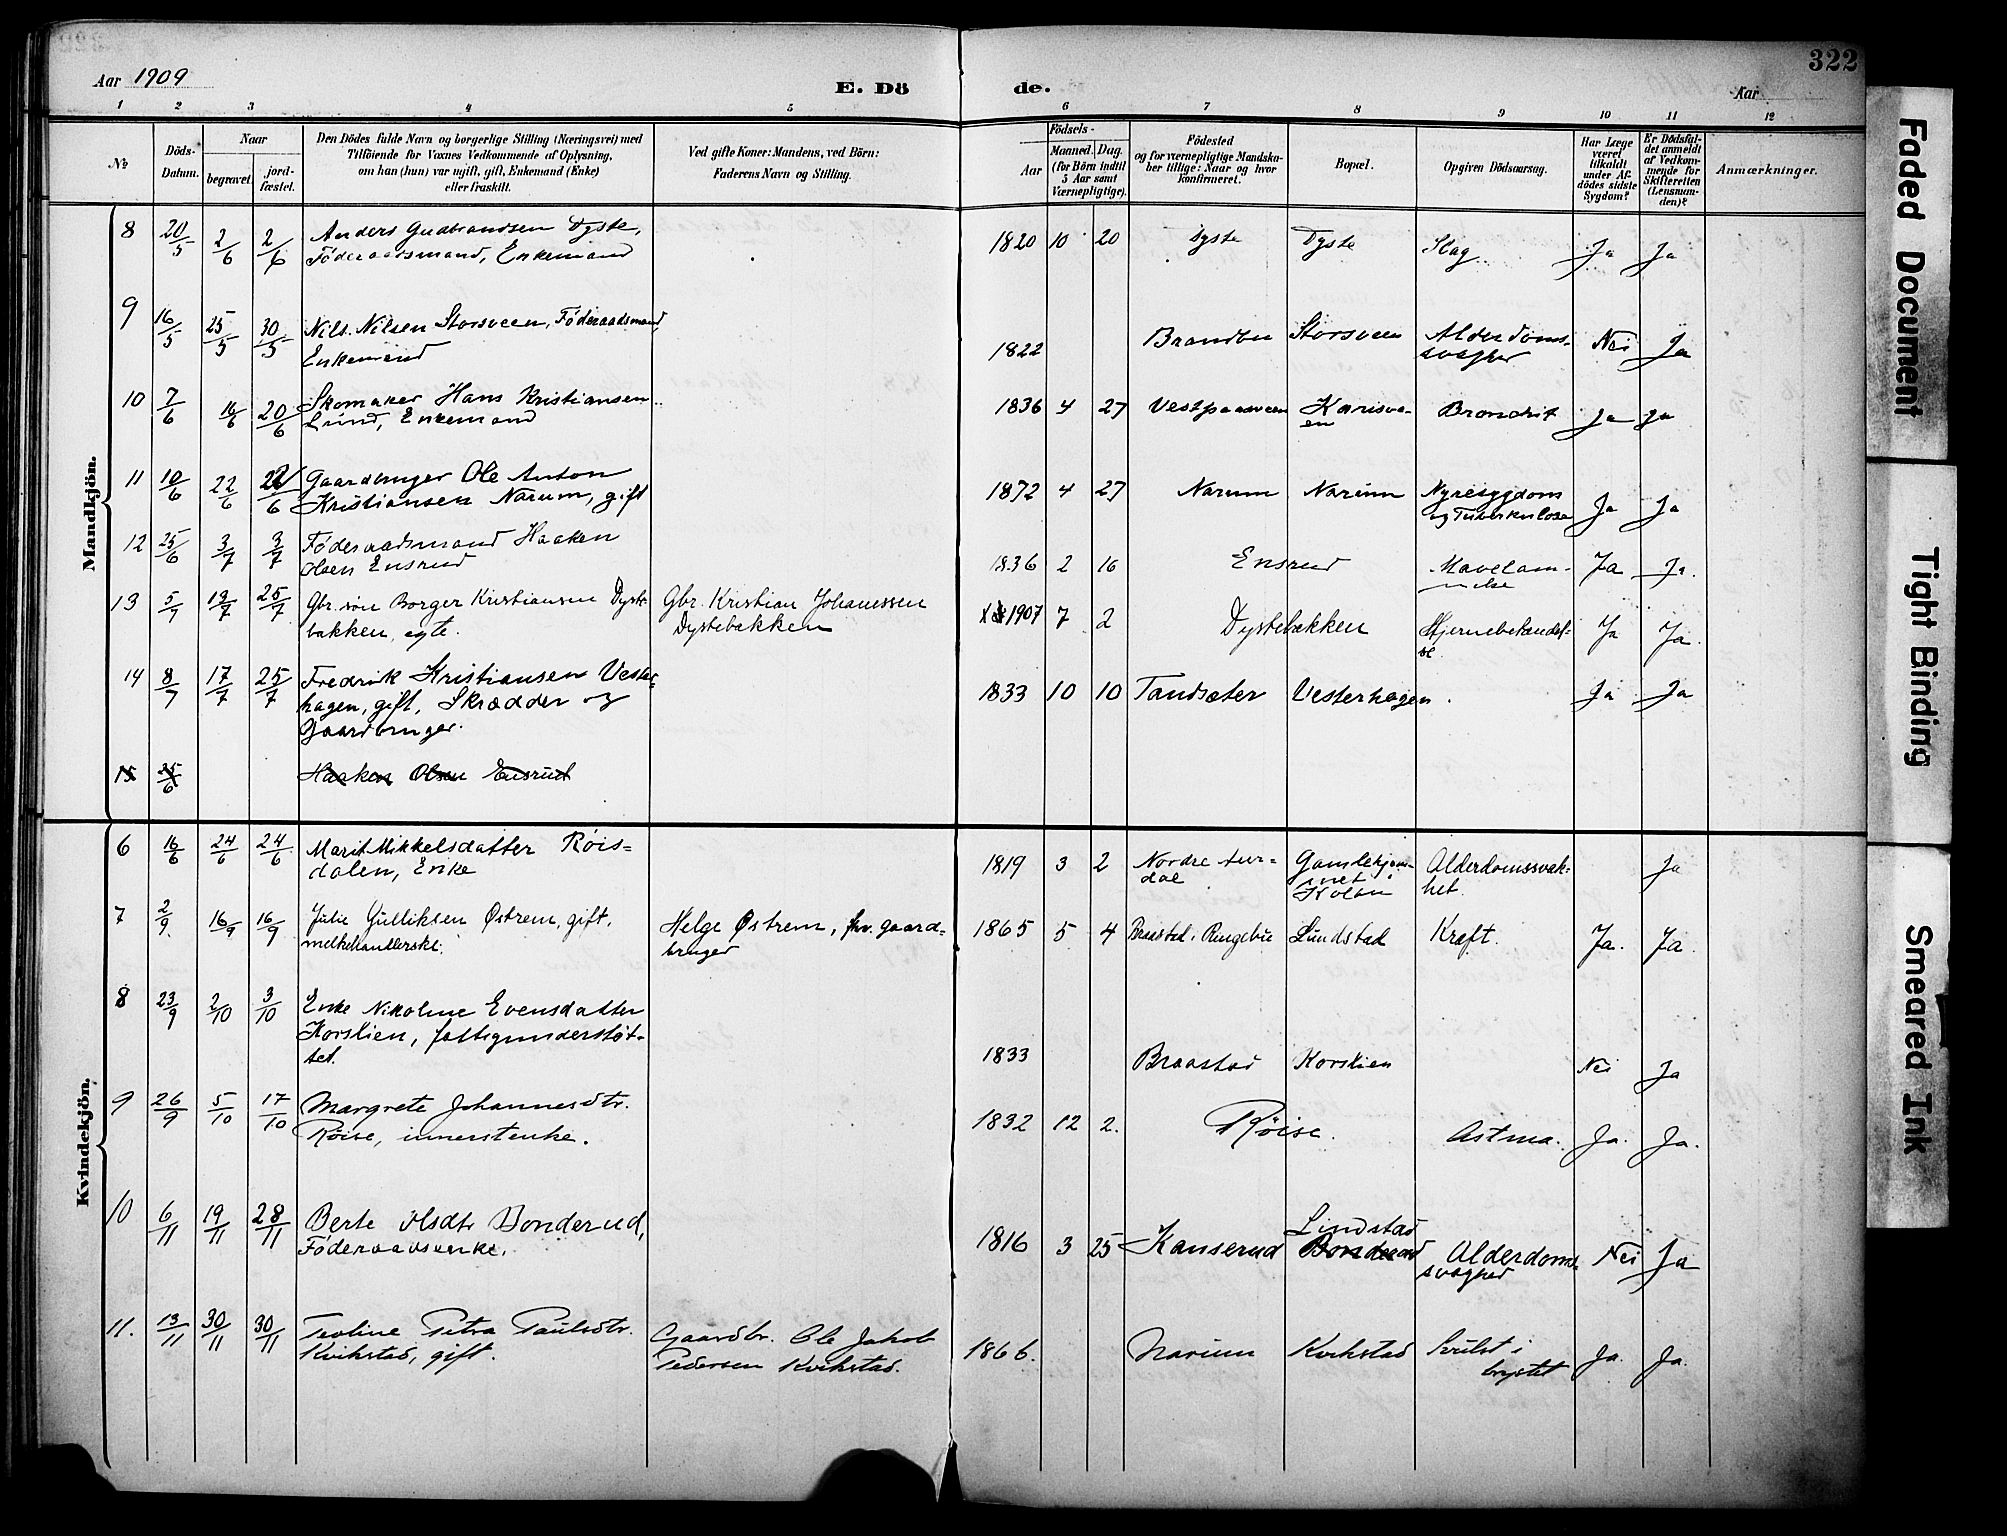 322
Aar 1909
E. Dö
de.
Aar
1 2 3 4 5 6 7 8 9 10 11 12
No
Döds-
Datum.
Naar
begravet.
jord-
fæstet.
Den Dödes fulde Navn og borgerlige Stilling (Næringsvei) med
Tilföiende for Voxnes Vedkommende af Oplysning,
om han (hun) var ugift, gift, Enkemand (Enke)
eller fraskilt.
Ved gifte Koner: Mandens, ved Börn:
Faderens Navn og Stilling.
Födsels-
Aar
Maaned. Dag.
(for Börn indtil
5 Aar samt
Værnepligtige).
Födested
og for værnepligtige Mandska-
ber tillige: Naar og hvor
konfirmeret.
Bopæl.
Opgiven Dödsaarsag.
Har Læge
været
tilkaldt
under Af-
dödes sidste
Sygdom?
Er Dödsfal-
det anmeldt
af Vedkom-
mende for
Skifteretten
(Lensman-
den)?
Anmærkninger.
Mandkjön.
8 20/5 2/6 2/6 Anders Gudbrandsen Dyste, 1820 10 20 Dyste Dyste Slag Ja Ja
Föderaadsmand, Enkemand
9 16/5 25/5 30/5 Nils Nilsen Storsveen, Föderaadsmand 1822 Brandbu Storsveen Alderdoms- Nei Ja
Enkemand svaghed
10 7/6 16/6 20/6 Skomaker Hans Kristiansen 1836 4 27 Vestpaasveen Karisve- Bronchit Ja Ja
Lund, Enkemand en
11 10/6 22/6 22/6 Gaardbruger Ole Anton 1872 4 27 Narum Narum Nyresygdom Ja Ja
Kristiansen Narum, gift og Tuberkulose
12 25/6 3/7 3/7 Föderaadsmand Haaken 1836 2 16 Ensrud Mavelam- Ja Ja.
Olsen Ensrud melse
13 5/7 13/7 25/7 Gbr. søn Borger Kristiansen Dyste- Gbr. Kristian Johanessen 1907 7 2 Dystebakken Hjernebetændel- Ja Ja
bakken, egte. Dystebakken se
14 8/7 17/7 25/7 Fredrik Kristiansen Vester- 1833 10 10 Tandsæter Vesterhagen Ja Ja
hagen, gift, Skrædder og
Gaardbruger.
15 25/6 Haaken Olsen Ensrud
Kvindekjön.
6 16/6 24/6 24/6 Marit Mikkelsdatter Røis- 1819 3 2 Nordre Aur- Gamlehjem- Alderdomssvak- Ja
dalen, Enke dal met i het.
Kolbu
7 2/9 16/9 16/9 Julie Gulliksen Østrem, gift, Helge Østrem, fhv. gaard- 1865 5 4 Braastad, Ringebu Lundstad Kræft. Ja. Ja.
melkehandlerske. bruger
8 23/9 2/10 3/10 Enke Nikoline Evensdatter
Korslien, fattigunderstøt-
tet. 1833 Braastad Korslien Nei Ja
9 26/9 5/10 17/10 Margrete Johannesdtr. 1832 12 2. Røise. Astma. Ja. Ja.
Røise, innerstenke.
10 6/11 19/11 28/11 Berte Olsdtr Bonderud, 1816 3 25 Kanserud Lundstad
Föderaadsenke. Bonderud Alderdoms- Nei Ja
svaghed
11. 13/11 30/11 30/11 Teoline Petra Paulsdtr. Gaardbr. Ole Jakob 1866. Narum Kvikstad Svulst i Ja. Ja.
Kvikstad, gift. Pedersen Kvikstad. brystet
Faded Document
Tight Binding
Smeared Ink